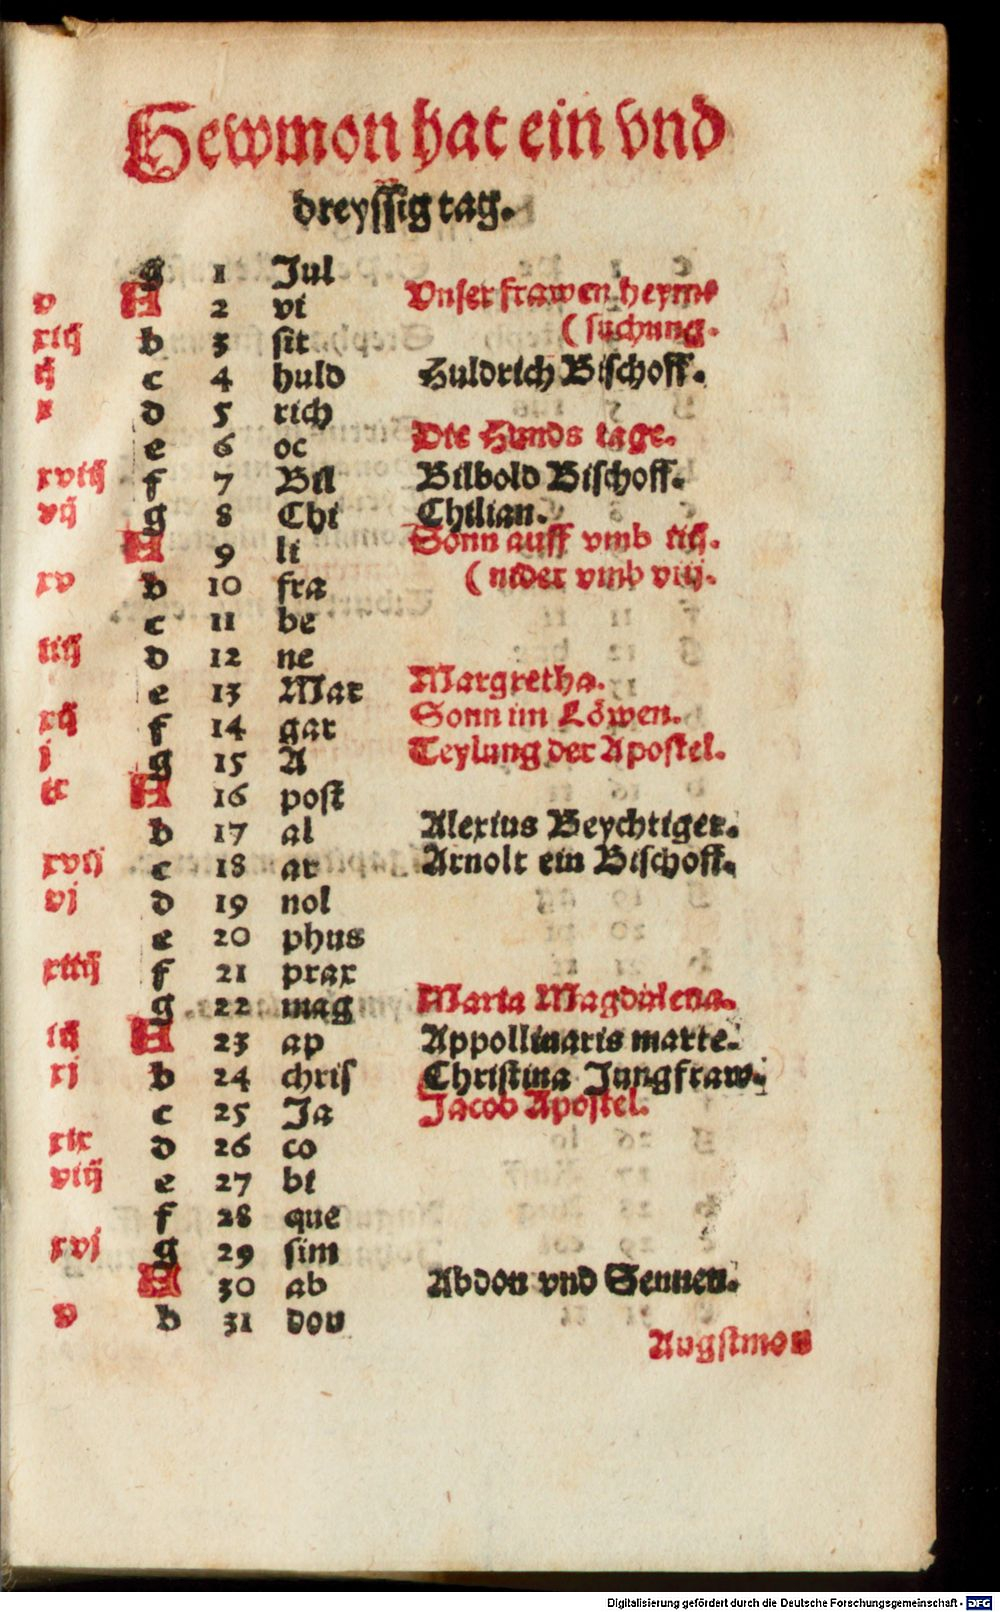 Hewmon hat ein vnd
dreyssig tag.
g 1 Jul
v A 2 vi Vnser frawen heyme
xiij b 3 sit ( suchung.
ij c 4 huld Huldrich Bischoff.
x d 5 rich
e 6 oc Die Hunds tage.
xviij f 7 Bil Bilbold Bischoff.
vij g 8 Chi Chilian.
A 9 li Sonn auff vmb iiij.
xv b 10 fra ( nider vmb viij.
c 11 be
iiij d 12 ne
e 13 Mar Margretha.
xij f 14 gar Sonn im Löwen.
j g 15 A Teylung der Apostel.
ix A 16 post
b 17 al Alexius Beychtiger.
xvij c 18 ar Arnolt ein Bischoff.
vj d 19 nol
e 20 phus
xiiij f 21 prax
g 22 mag Maria Magdalena.
iij A 23 ap Appollinaris marte.
xj b 24 chris Christina Jungfraw.
c 25 Ja Jacob Apostel.
xix d 26 co
viij e 27 bi
f 28 que
xvj g 29 sim
A 30 ab Abdon vnd Sennen.
v b 31 don
Augstmon
Digitalisierung gefördert durch die Deutsche Forschungsgemeinschaft - DFG